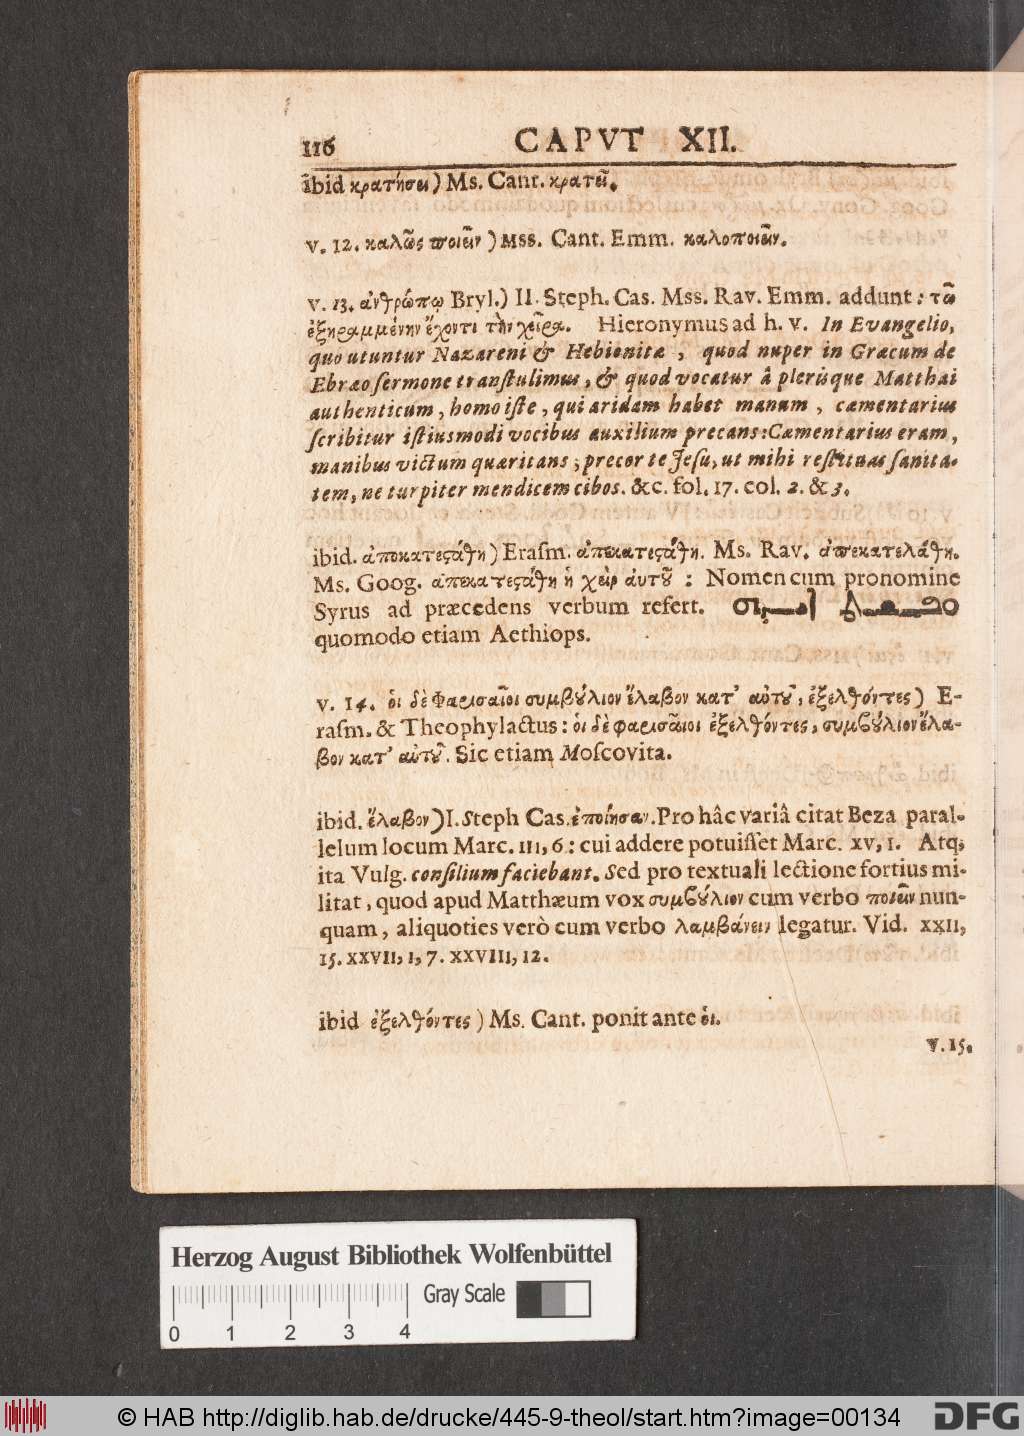 116 CAPVT XII.
ibid κρατήσει) Ms. Cant. κρατεῖ.
v. 12. καλῶς ποιεῖν) Mss. Cant. Emm. καλοποιεῖν.
v. 13. ἀνθρώπῳ Bryl.) II. Steph. Cas. Mss. Rav. Emm. addunt: τῶ
ἐξηραμμένην ἔχοντι τὴν χεῖρα. Hieronymus ad h. v. In Evangelio,
quo utuntur Nazareni & Hebionitæ, quod nuper in Græcum de
Ebræo ſermone tranſtulimus, & quod vocatur â pleriſque Matthæi
authenticum, homo iſte, qui aridam habet manum, cæmentarius
ſcribitur iſtiusmodi vocibus auxilium precans: Cæmentarius eram,
manibus victum quæritans; precor te Jeſu, ut mihi reſtituas ſanita-
tem, ne turpiter mendicem cibos. &c. fol. 17. col. 2. & 3.
ibid. ἀποκατεϛάθη) Eraſm. ἀπεκατεϛάθη. Ms. Rav. ἀπεκατελάθη.
Ms. Goog. ἀπεκατεϛάθη ἡ χεὶρ ἀυτοῦ: Nomen cum pronomine
Syrus ad præcedens verbum refert.
quomodo etiam Aethiops.
v. 14. ὁι δὲ Φαρισαῖοι συμβούλιον ἔλαβον κατ' αὐτοῦ, ἐξελθόντες) E-
raſm. & Theophylactus: ὁι δὲ φαρισαῖοι ἐξελθόντες, συμβούλιον ἔλα-
βον κατ' αὐτοῦ. Sic etiam Moſcovita.
ibid. ἔλαβον) I. Steph Cas. ἐποίησαν. Pro hâc variâ citat Beza paral-
lelum locum Marc. III, 6: cui addere potuiſſet Marc. XV, 1. Atq;
ita Vulg. conſilium faciebant. Sed pro textuali lectione fortius mi-
litat, quod apud Matthæum vox συμβούλιον cum verbo ποιεῖν nun-
quam, aliquoties verò cum verbo λαμβάνειν legatur. Vid. XXII,
15. XXVII, 1, 7. XXVIII, 12.
ibid ἐξελθόντες) Ms. Cant. ponit ante ὁι.
v. 15.
Herzog August Bibliothek Wolfenbüttel
Gray Scale
0 1 2 3 4
© HAB http://diglib.hab.de/drucke/445-9-theol/start.htm?image=00134 DFG